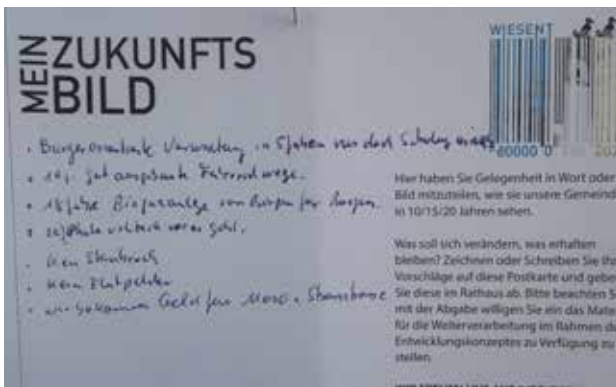 MEIN ZUKUNFTS
BILD
WIESENT
Bürgerorientierte Verwaltung in 5 Jahren nur durch
10 J. gut ausgebaute Fahrradwege.
15 Jahre Biogasanlage von Bürgern für Bürger.
20 Jahre
Kein Steinbruch
Kein Flutpolder
wir bekommen Geld für Moos u. Steinbruch
Hier haben Sie Gelegenheit in Wort oder
Bild mitzuteilen, wie sie unsere Gemeind
in 10/15/20 Jahren sehen.
Was soll sich verändern, was erhalten
bleiben? Zeichnen oder Schreiben Sie Ihr
Vorschläge auf diese Postkarte und gebe
Sie diese im Rathaus ab. Bitte beachten S
mit der Abgabe willigen Sie ein das Mate
für die Weiterverarbeitung im Rahmen d
Entwicklungskonzeptes zu Verfügung zu
stellen.